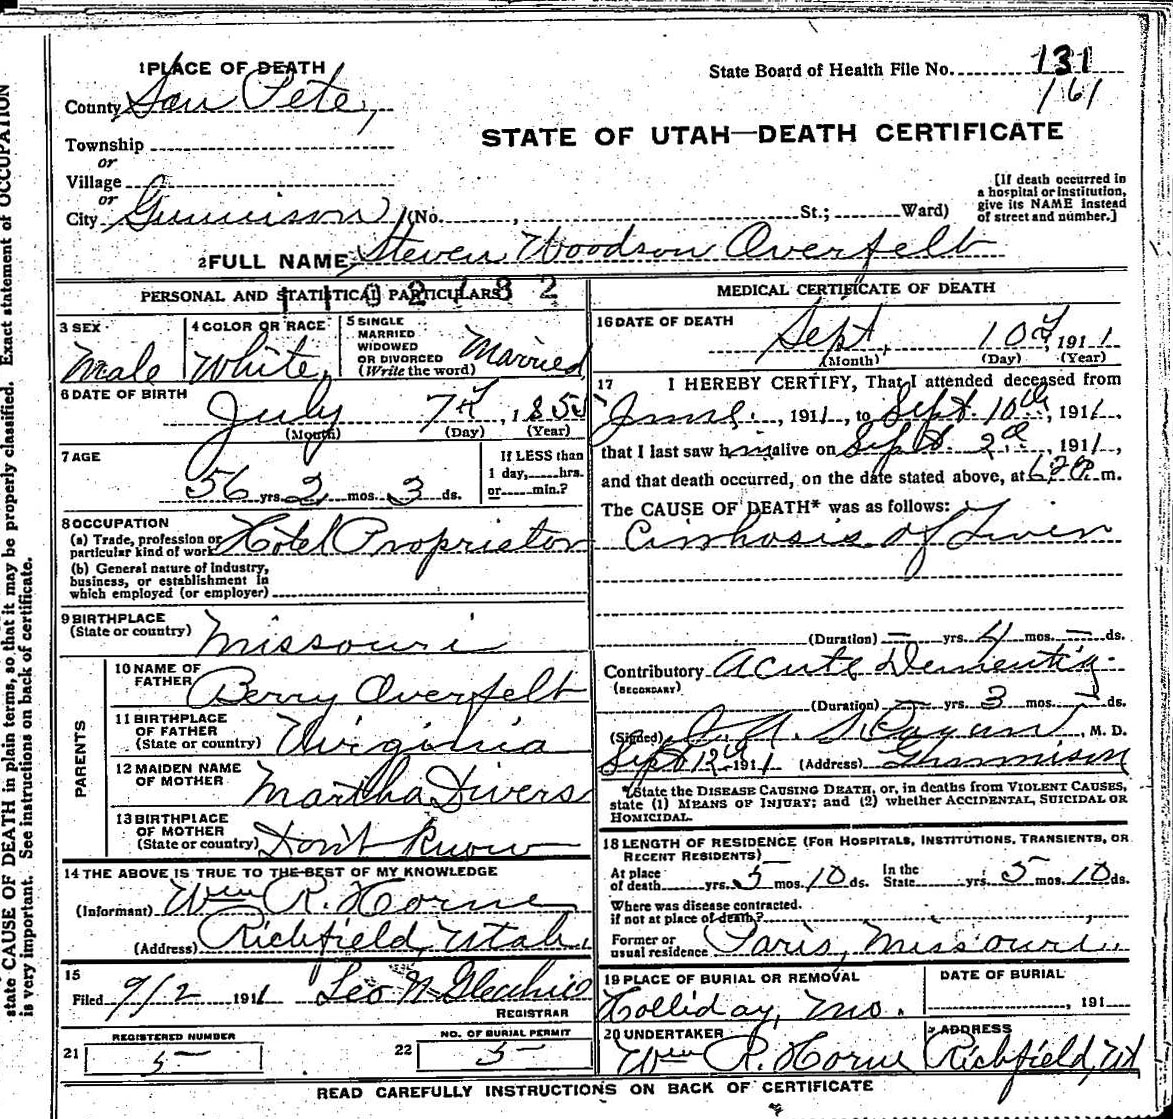 1 PLACE OF DEATH
State Board of Health File No. 131
161
County San Pete,
STATE OF UTAH—DEATH CERTIFICATE
Township
or
Village
or
City Gunnison (No. , St.; Ward)
[If death occurred in
a hospital or institution,
give its NAME instead
of street and number.]
2 FULL NAME Steven Woodson Overfelt
PERSONAL AND STATISTICAL PARTICULARS
3 SEX
Male
4 COLOR OR RACE
White
5 SINGLE
MARRIED
WIDOWED
OR DIVORCED
(Write the word) Married
6 DATE OF BIRTH
July 7th, 1855
(Month) (Day) (Year)
7 AGE
56 yrs. 2 mos. 3 ds.
If LESS than
1 day, hrs.
or min.?
8 OCCUPATION
(a) Trade, profession or
particular kind of work Hotel Proprietor
(b) General nature of industry,
business, or establishment in
which employed (or employer)
9 BIRTHPLACE
(State or country) Missouri
PARENTS
10 NAME OF
FATHER Berry Overfelt
11 BIRTHPLACE
OF FATHER
(State or country) Virginia
12 MAIDEN NAME
OF MOTHER Martha Divers
13 BIRTHPLACE
OF MOTHER
(State or country) Don't Know
14 THE ABOVE IS TRUE TO THE BEST OF MY KNOWLEDGE
(Informant) Wm R. Horne
(Address) Richfield, Utah.
15
Filed 9/12 1911 Leo N
REGISTRAR
REGISTERED NUMBER
21 5
NO. OF BURIAL PERMIT
22 5
MEDICAL CERTIFICATE OF DEATH
16 DATE OF DEATH
Sept. 10th, 1911
(Month) (Day) (Year)
17 I HEREBY CERTIFY, That I attended deceased from
June, 1911, to Sept. 10th, 1911,
that I last saw him alive on Sept. 2d, 1911,
and that death occurred, on the date stated above, at m.
The CAUSE OF DEATH* was as follows:
Cirrhosis of Liver
(Duration) — yrs. 4 mos. — ds.
Contributory Acute Dementia
(SECONDARY)
(Duration) — yrs. 3 mos. — ds.
(Signed) , M. D.
Sept 12th 1911 (Address) Gunnison
*State the DISEASE CAUSING DEATH, or, in deaths from VIOLENT CAUSES,
state (1) MEANS OF INJURY; and (2) whether ACCIDENTAL, SUICIDAL OR
HOMICIDAL.
18 LENGTH OF RESIDENCE (FOR HOSPITALS, INSTITUTIONS, TRANSIENTS, OR
RECENT RESIDENTS)
At place
of death yrs. 5 mos. 10 ds.
In the
State yrs. 5 mos. 10 ds.
Where was disease contracted,
if not at place of death?
Former or
usual residence Paris, Missouri.
19 PLACE OF BURIAL OR REMOVAL
Holliday, Mo.
DATE OF BURIAL
, 191
20 UNDERTAKER
Wm R. Horne
ADDRESS
Richfield, Ut
READ CAREFULLY INSTRUCTIONS ON BACK OF CERTIFICATE
state CAUSE OF DEATH in plain terms, so that it may be properly classified. Exact statement of OCCUPATION
is very important. See instructions on back of certificate.